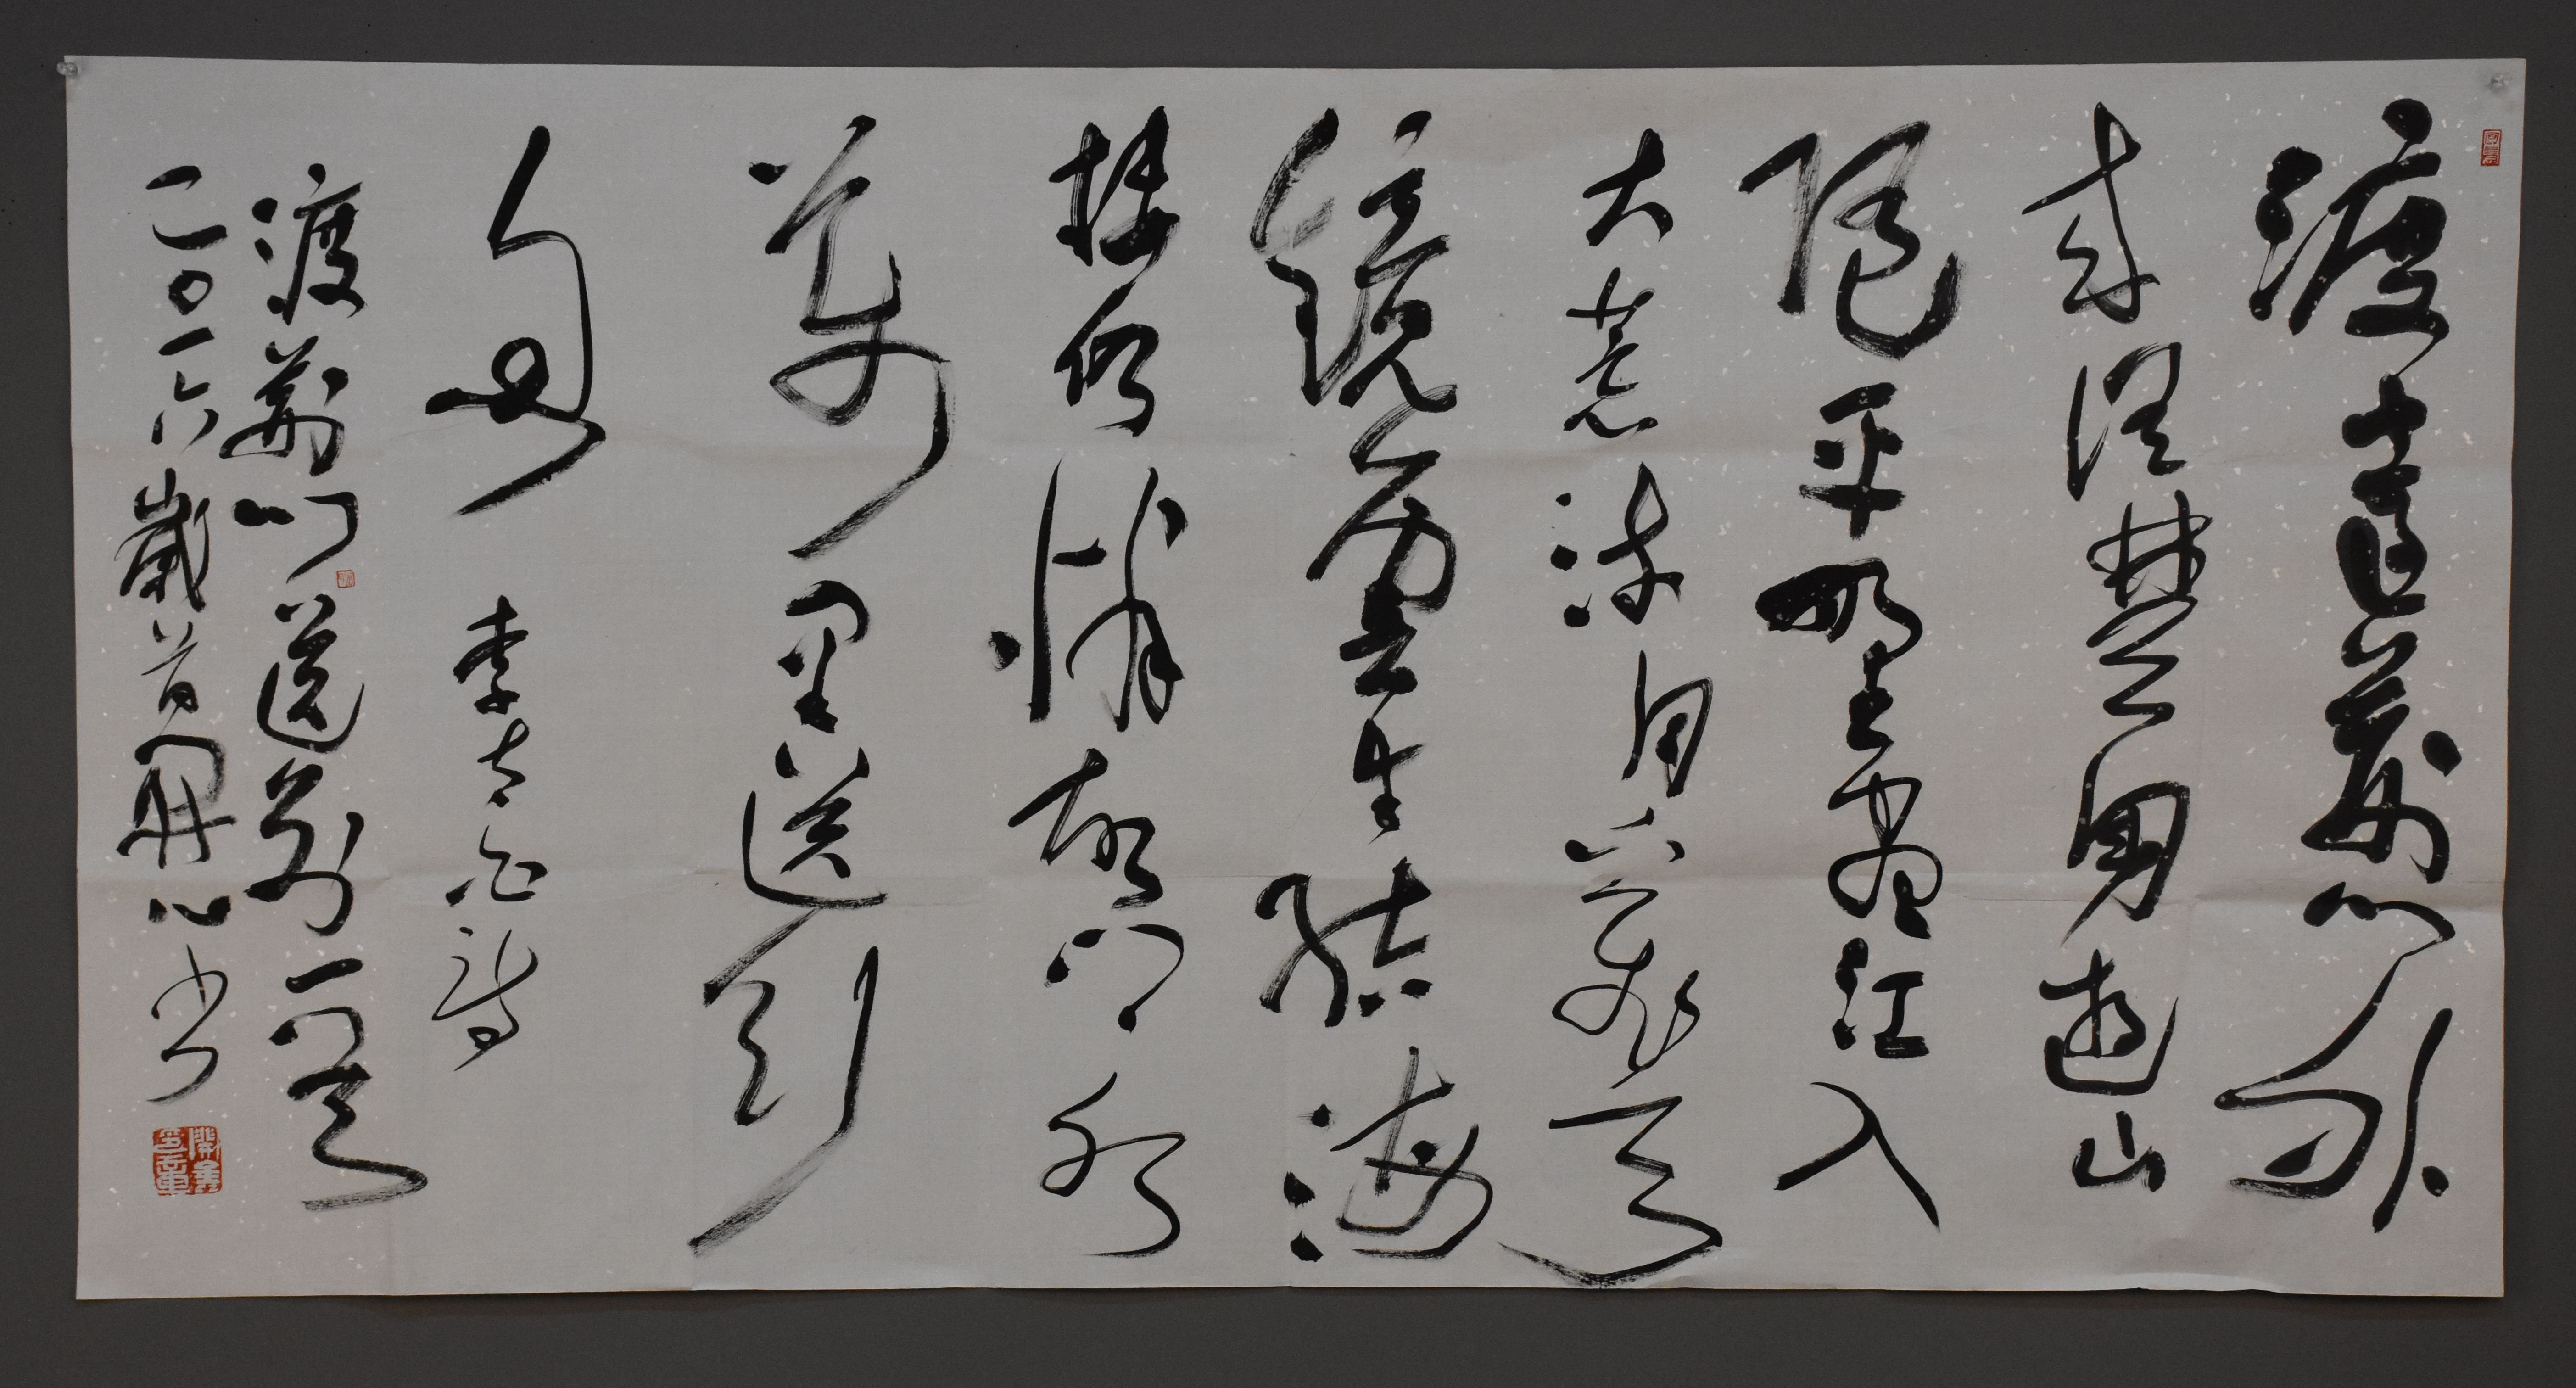 渡遠荊門外
来從楚國遊山
隨平野盡江入
大荒流月下飛天
鏡雲生結海
楼仍憐故鄉水
萬里送行
舟 李太白詩
渡荊門送別一
二〇一六歲首開心書